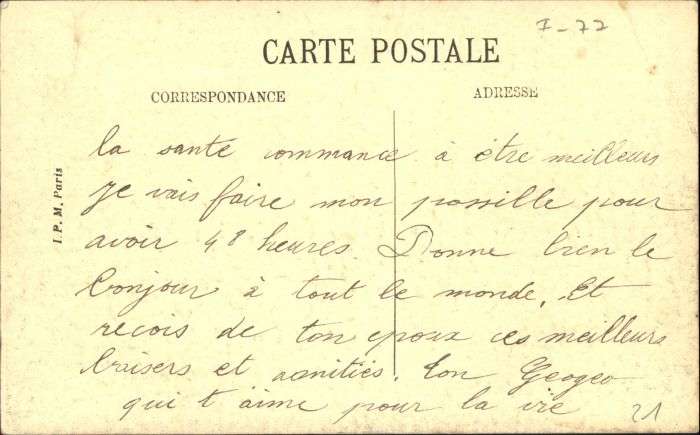 I-77
CARTE POSTALE
CORRESPONDANCE
ADRESSE
I. P. M. Paris
la santé commance à être meilleurs
je vais faire mon possille pour
avoir 48 heures. Donne bien le
bonjour à tout le monde. Et
recois de ton epoux ces meilleurs
baisers et amitiés. ton Geogeo
qui t'aime pour la vie
21